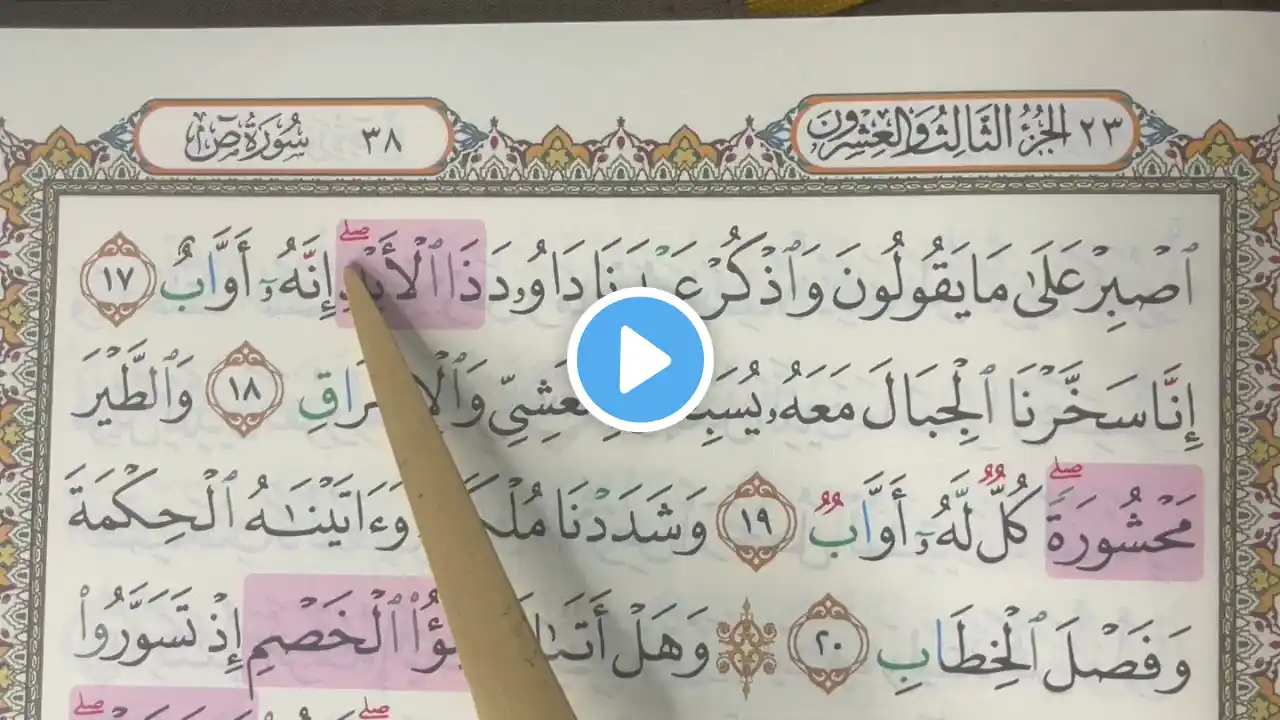 ٢٣ الجُزْءُ الثَّالِثُ وَالعِشْرُونَ
سُورَةُ صٓ ٣٨
ٱصْبِرْ عَلَىٰ مَا يَقُولُونَ وَٱذْكُرْ دَاوُۥدَ ذَا ٱلْأَيْدِۖ إِنَّهُۥٓ أَوَّابٌ ١٧
إِنَّا سَخَّرْنَا ٱلْجِبَالَ مَعَهُۥ وَٱلْإِشْرَاقِ ١٨ وَٱلطَّيْرَ
مَحْشُورَةًۖ كُلٌّ لَّهُۥٓ أَوَّابٌ ١٩ وَشَدَدْنَا وَءَاتَيْنَٰهُ ٱلْحِكْمَةَ
وَفَصْلَ ٱلْخِطَابِ ٢٠ وَهَلْ ٱلْخَصْمِ إِذْ تَسَوَّرُوا۟